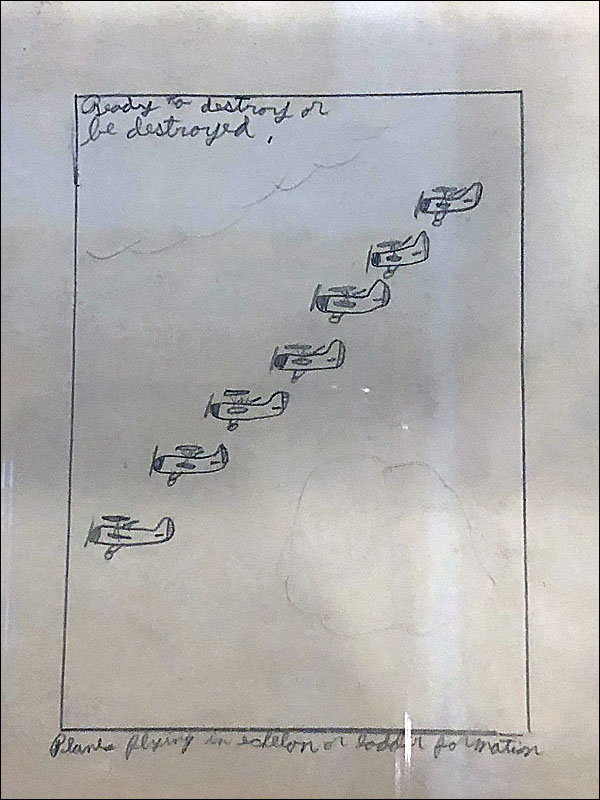 Ready to destroy or
be destroyed,
Planes flying in echelon or ladder formation